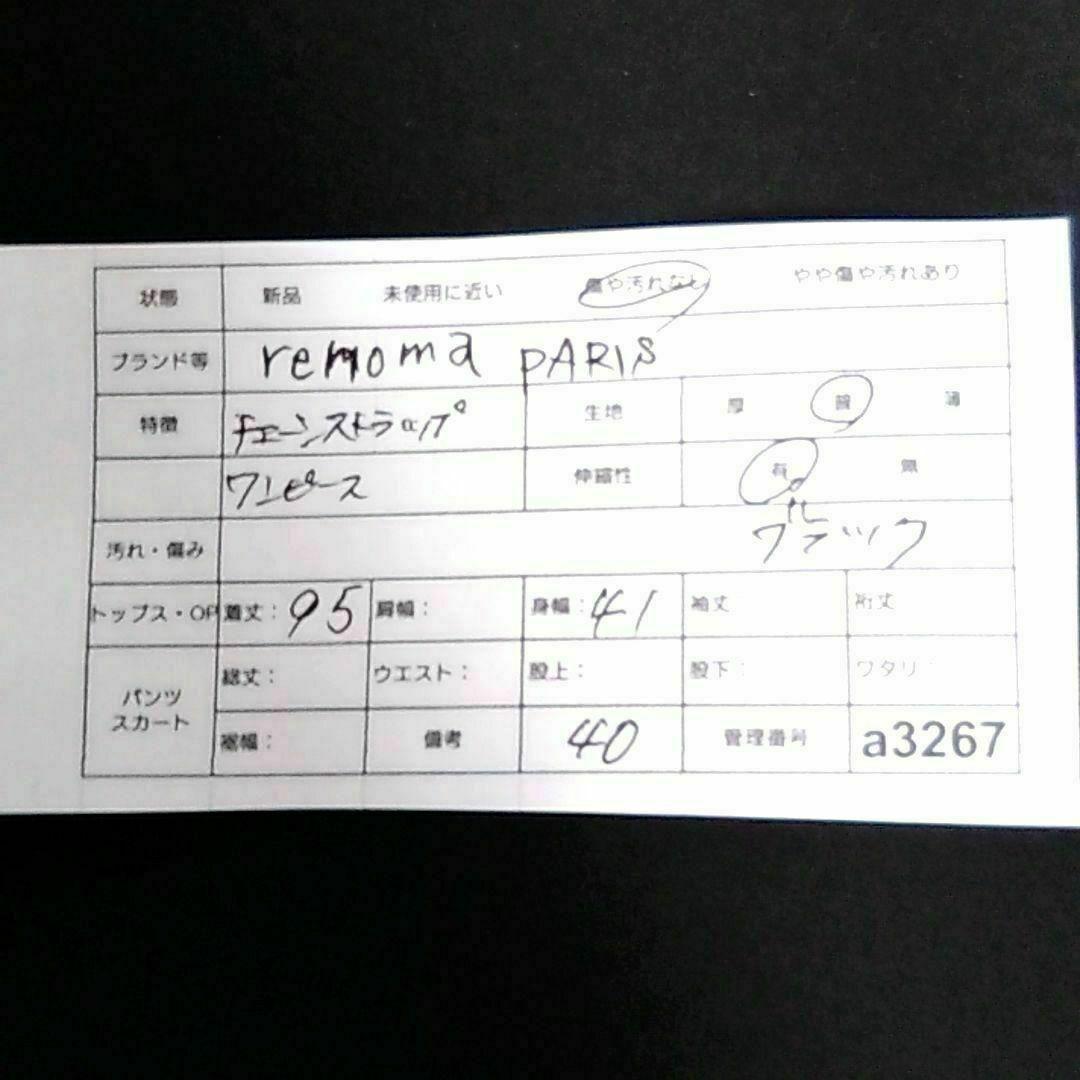 状態 新品 未使用に近い 傷や汚れなし やや傷や汚れあり
ブランド等 remoma PARIS
特徴 チェーンストラップ 生地 厚 普 薄
ワンピース 伸縮性 有 無
汚れ・傷み ブラック
トップス・OP 着丈: 95 肩幅: 身幅: 41 袖丈 裄丈
パンツ スカート 総丈: ウエスト: 股上: 股下: ワタリ:
裾幅: 備考 40 管理番号 a3267